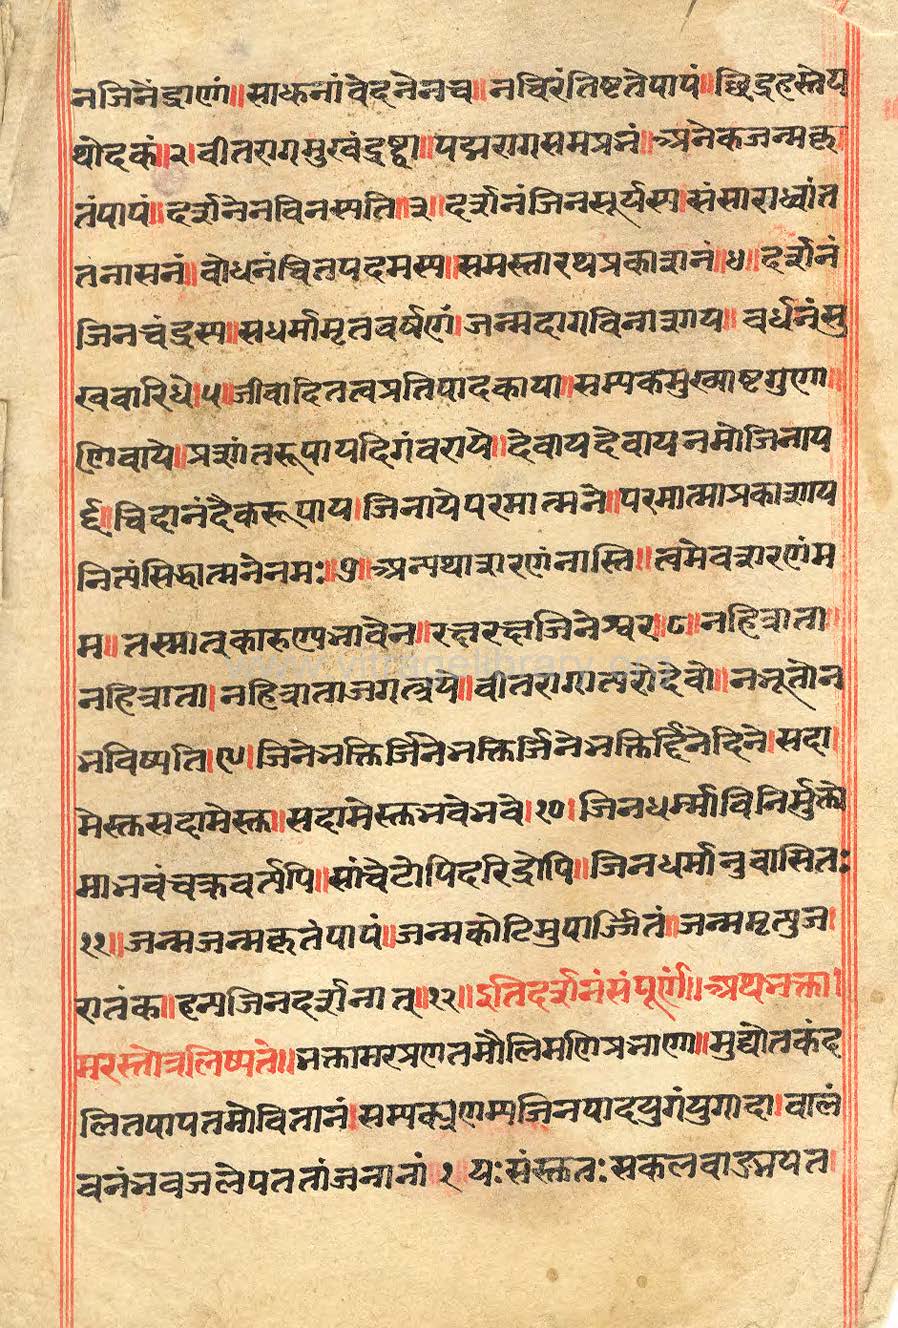 नजिनेंद्राणां॥साधूनांवेदनेनच॥नचिरंतिष्टतेपापं॥छिद्रहस्तेय
थोदकं॥२।वीतरागसुखंद्रष्ट्वा॥पद्मरागसमप्रभं॥अनेकजन्मकृ
तंपापं॥दर्शनेनविनस्यति॥३॥दर्शनंजिनसूर्यस्य।संसारध्वांत
तनासनं॥बोधनंचितपदमस्य॥समस्तारथप्रकाशनं॥४॥दर्शनं
जिनचंद्रस्य॥सधर्मामृतवर्षणं।जन्मदागविनाशाय॥वर्धनंसु
खवारिधे।५॥जीवादितत्वप्रतिपादकाया॥सम्यकमुख्याष्टगुणा॥
र्णवाये॥प्रशांतरूपायदिगंवराये॥देवायदेवायनमोजिनाय
६॥चिदानंदैकरूपाय।जिनायेपरमात्मने॥परमात्माप्रकाशाय
नित्यंसिद्धात्मनेनमः॥७॥अन्यथाशरणंनास्ति॥त्वमेवशरणंम
म॥तस्मातकारुण्यभावेन॥रक्षरक्षजिनेश्वर॥८॥नहित्राता।
नहित्राता।नहित्राताजगत्त्रये॥वीतरागात्परोदेवो॥नभूतोन
भविष्यति।९।जिनेभक्तिर्जिनेभक्तिर्जिनेभक्तिर्दिनेदिने।सदा।
मेस्तुसदामेस्तु॥सदामेस्तुभवेभवे।१०।जिनधर्म्माविनिर्मुक्तो
माभवंचक्रवर्तपि॥सांचेटोपिदरिद्रोपि॥जिनधर्मानुवासितः
११॥जन्मजन्मकृतंपापं॥जन्मकोटिमुपार्ज्जितं॥जन्ममृत्युज।
रातंक॥हन्यजिनदर्शनात्॥१२॥इतिदर्शनंसंपूर्णं॥अथभक्ता।
मरस्तोत्रलिष्यते॥भक्तामरप्रणतमौलिमणिप्रभाणा॥मुद्योतकंद
लितपापतमोवितानं।सम्यक्प्रणम्यजिनपादयुगंयुगादा।वालं
वनंभवजलेपततांजनानां।१।यःसंस्तुतःसकलवाङ्मयत।